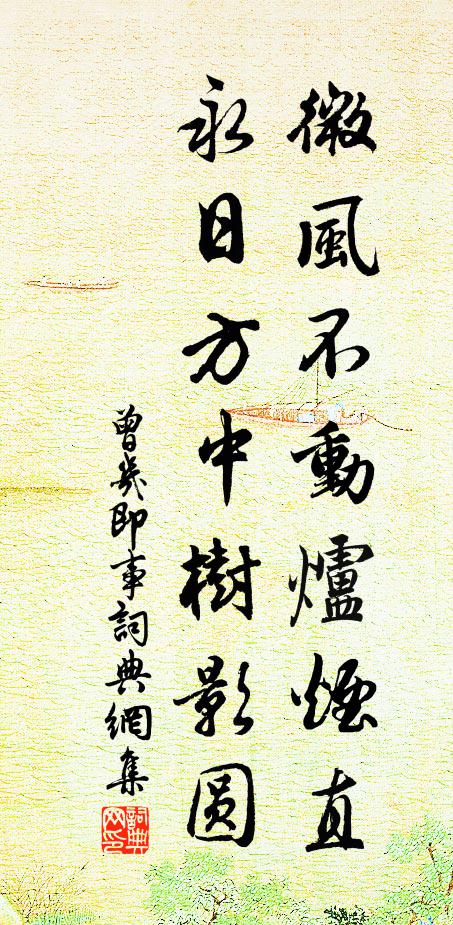 微風不動爐煙直
永日方中樹影圓
曾幾即事詞典網集
詞典網印